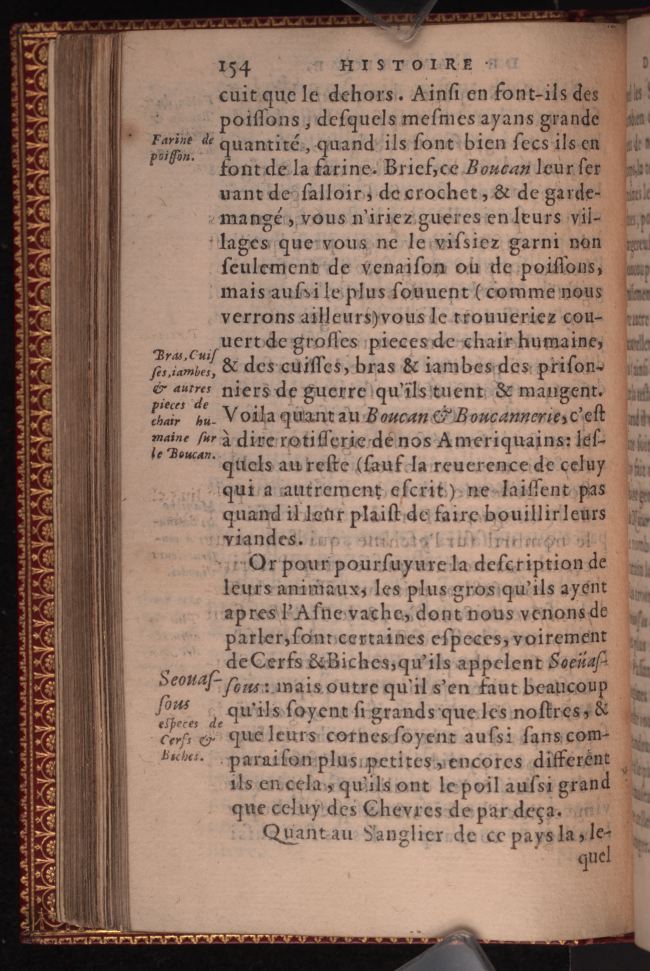 154 HISTOIRE
cuit que le dehors. Ainſi en font-ils des
poiſſons, deſquels meſmes ayans grande
quantité, quand ils ſont bien ſecs ils en
font de la farine. Brief, ce Boucan leur ſer
uant de ſalloir, de crochet, & de garde-
mangé, vous n'iriez gueres en leurs vil-
lages que vous ne le viſsiez garni non
ſeulement de venaiſon ou de poiſſons,
mais auſsi le plus ſouuent (comme nous
verrons ailleurs) vous le trouueriez cou-
uert de groſſes pieces de chair humaine,
& des cuiſſes, bras & iambes des priſon-
niers de guerre qu'ils tuent & mangent.
Voila quant au Boucan & Boucannerie, c'eſt
à dire rotiſſerie de nos Ameriquains: leſ-
quels au reſte (ſauf la reuerence de celuy
qui a autrement eſcrit) ne laiſſent pas
quand il leur plaiſt de faire bouillir leurs
viandes.
Or pour pourſuyure la deſcription de
leurs animaux, les plus gros qu'ils ayent
apres l'Aſne vache, dont nous venons de
parler, ſont certaines eſpeces, voirement
de Cerfs & Biches, qu'ils appelent Soeüaſ-
ſous: mais outre qu'il s'en faut beaucoup
qu'ils ſoyent ſi grands que les noſtres, &
que leurs cornes ſoyent auſsi ſans com-
paraiſon plus petites, encores different
ils en cela, qu'ils ont le poil auſsi grand
que celuy des Chevres de par deça.
Quant au Sanglier de ce pays la, le-
quel
Farine de
poiſſon.
Bras, Cuiſ
ſes, iambes,
& autres
pieces de
chair hu-
maine ſur
le Boucan.
Seouaſ-
ſous
eſpeces de
Cerfs &
Biches.